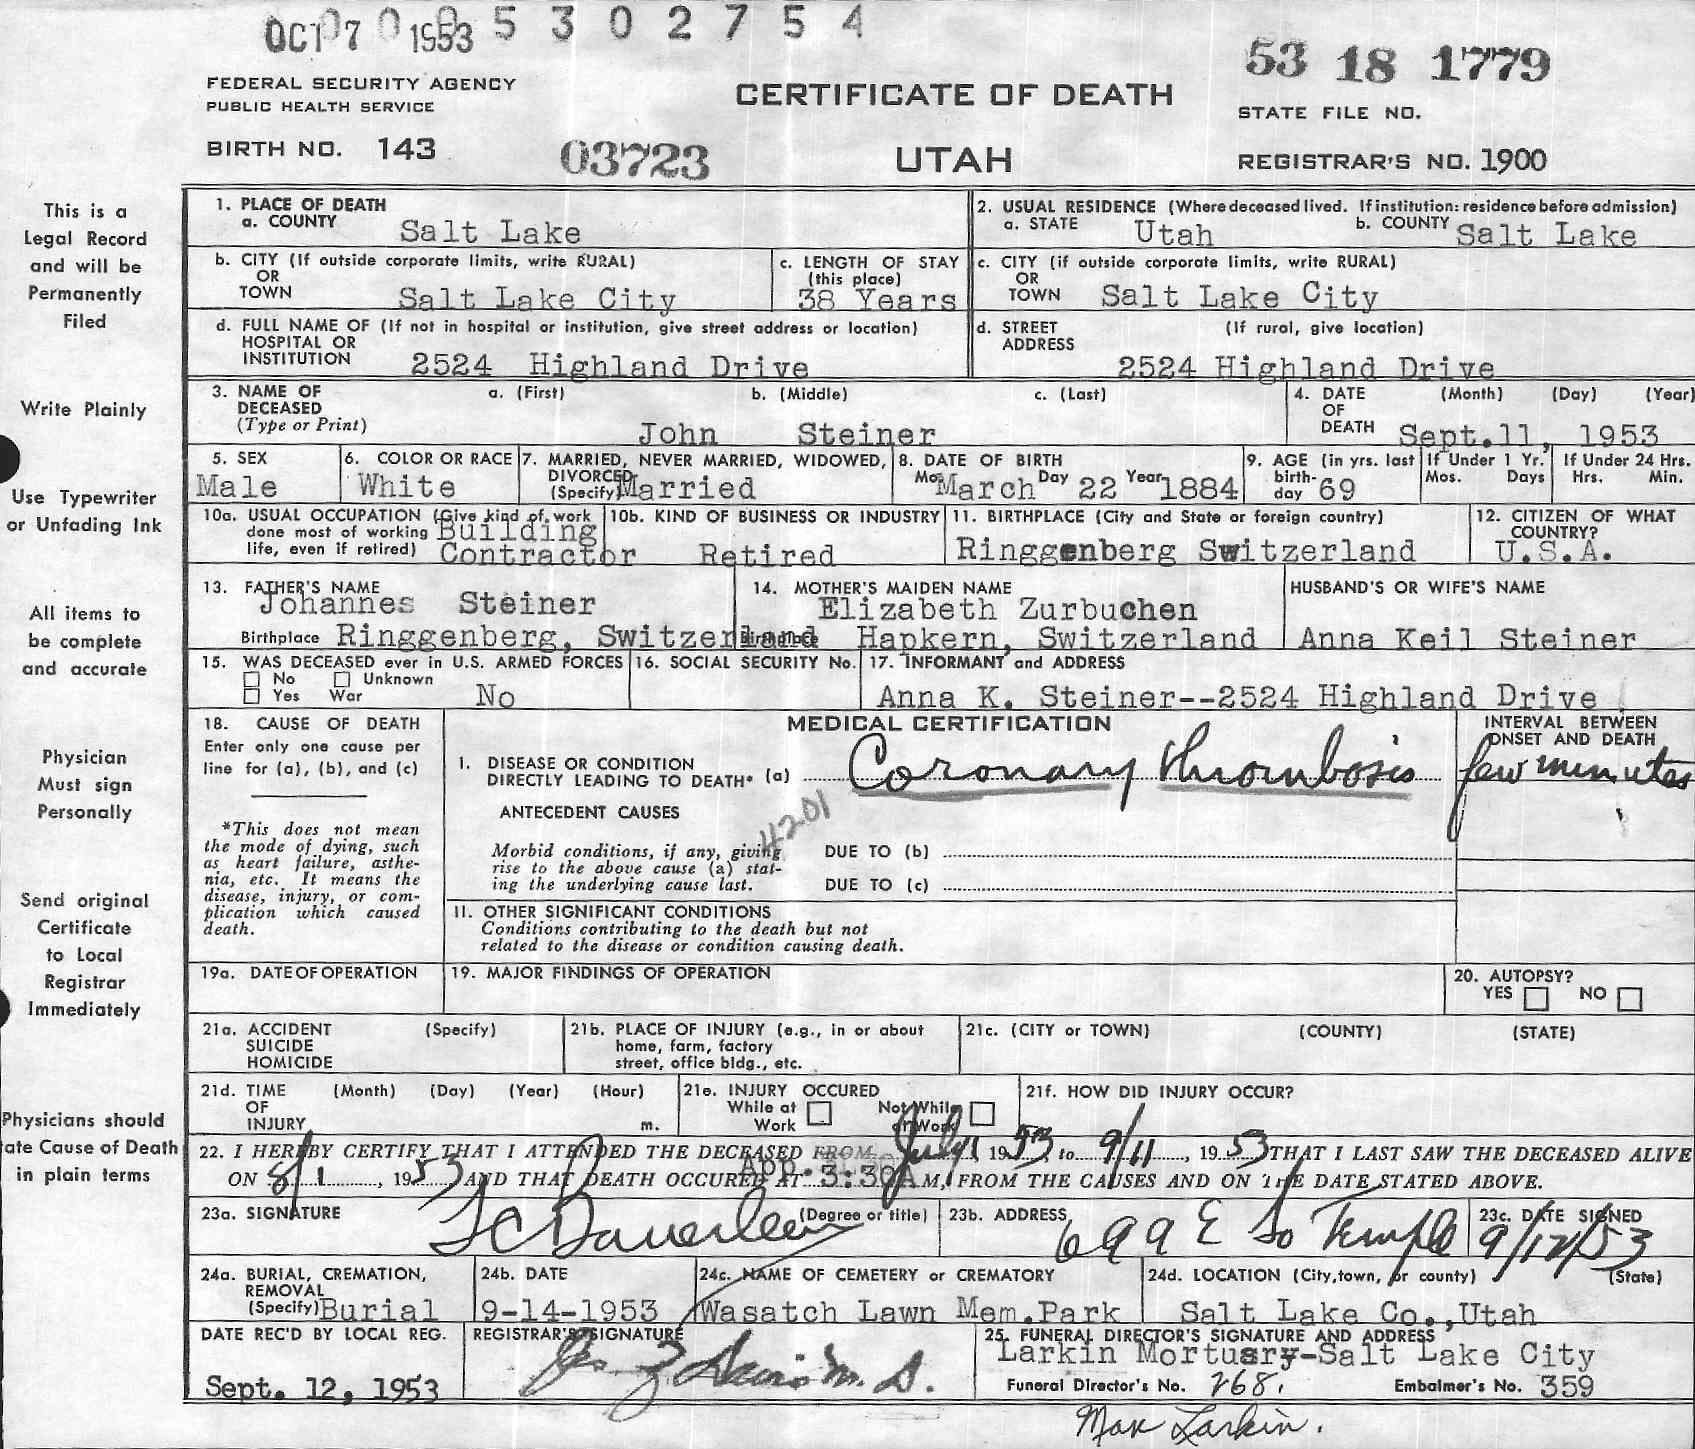 OCT 7 0 1953 5 3 0 2 7 5 4
53 18 1779
FEDERAL SECURITY AGENCY
PUBLIC HEALTH SERVICE
CERTIFICATE OF DEATH
STATE FILE NO.
BIRTH NO. 143
03723
UTAH
REGISTRAR'S NO. 1900
This is a
Legal Record
and will be
Permanently
Filed
1. PLACE OF DEATH
a. COUNTY Salt Lake
2. USUAL RESIDENCE (Where deceased lived. If institution: residence before admission)
a. STATE Utah b. COUNTY Salt Lake
b. CITY (If outside corporate limits, write RURAL)
OR
TOWN Salt Lake City
c. LENGTH OF STAY
(this place)
38 Years
c. CITY (if outside corporate limits, write RURAL)
OR
TOWN Salt Lake City
d. FULL NAME OF (If not in hospital or institution, give street address or location)
HOSPITAL OR
INSTITUTION 2524 Highland Drive
d. STREET (If rural, give location)
ADDRESS
2524 Highland Drive
Write Plainly
3. NAME OF a. (First) b. (Middle) c. (Last)
DECEASED
(Type or Print) John Steiner
4. DATE (Month) (Day) (Year)
OF
DEATH Sept.11, 1953
Use Typewriter
or Unfading Ink
5. SEX
Male
6. COLOR OR RACE
White
7. MARRIED, NEVER MARRIED, WIDOWED,
DIVORCED
(Specify) Married
8. DATE OF BIRTH
Mo. March Day 22 Year 1884
9. AGE (in yrs. last
birth-
day 69
If Under 1 Yr.
Mos. Days
If Under 24 Hrs.
Hrs. Min.
10a. USUAL OCCUPATION (Give kind of work
done most of working Building
life, even if retired) Contractor
10b. KIND OF BUSINESS OR INDUSTRY
Retired
11. BIRTHPLACE (City and State or foreign country)
Ringgenberg Switzerland
12. CITIZEN OF WHAT
COUNTRY?
U.S.A.
All items to
be complete
and accurate
13. FATHER'S NAME
Johannes Steiner
Birthplace Ringgenberg, Switzerland
14. MOTHER'S MAIDEN NAME
Elizabeth Zurbuchen
Birthplace Hapkern, Switzerland
HUSBAND'S OR WIFE'S NAME
Anna Keil Steiner
15. WAS DECEASED ever in U.S. ARMED FORCES
No Unknown
Yes War No
16. SOCIAL SECURITY No.
17. INFORMANT and ADDRESS
Anna K. Steiner--2524 Highland Drive
Physician
Must sign
Personally
18. CAUSE OF DEATH
Enter only one cause per
line for (a), (b), and (c)
*This does not mean
the mode of dying, such
as heart failure, asthe-
nia, etc. It means the
disease, injury, or com-
plication which caused
death.
MEDICAL CERTIFICATION
INTERVAL BETWEEN
ONSET AND DEATH
I. DISEASE OR CONDITION
DIRECTLY LEADING TO DEATH* (a) Coronary thrombosis few minutes
ANTECEDENT CAUSES
4201
Morbid conditions, if any, giving
rise to the above cause (a) stat-
ing the underlying cause last.
DUE TO (b)
DUE TO (c)
II. OTHER SIGNIFICANT CONDITIONS
Conditions contributing to the death but not
related to the disease or condition causing death.
Send original
Certificate
to Local
Registrar
Immediately
19a. DATE OF OPERATION
19. MAJOR FINDINGS OF OPERATION
20. AUTOPSY?
YES NO
21a. ACCIDENT (Specify)
SUICIDE
HOMICIDE
21b. PLACE OF INJURY (e.g., in or about
home, farm, factory
street, office bldg., etc.
21c. (CITY or TOWN) (COUNTY) (STATE)
21d. TIME (Month) (Day) (Year) (Hour)
OF
INJURY m.
21e. INJURY OCCURED
While at Work Not While at Work
21f. HOW DID INJURY OCCUR?
Physicians should
ate Cause of Death
in plain terms
22. I HEREBY CERTIFY THAT I ATTENDED THE DECEASED FROM July 1, 1953, to 9/11, 1953 THAT I LAST SAW THE DECEASED ALIVE
ON 8/1, 1953 AND THAT DEATH OCCURED AT App. 3:30 A M, FROM THE CAUSES AND ON THE DATE STATED ABOVE.
23a. SIGNATURE (Degree or title)
23b. ADDRESS 699 E So Temple
23c. DATE SIGNED
9/12/53
24a. BURIAL, CREMATION,
REMOVAL
(Specify) Burial
24b. DATE
9-14-1953
24c. NAME OF CEMETERY or CREMATORY
Wasatch Lawn Mem.Park
24d. LOCATION (City, town, or county) (State)
Salt Lake Co.,Utah
DATE REC'D BY LOCAL REG.
Sept. 12, 1953
REGISTRAR'S SIGNATURE
25. FUNERAL DIRECTOR'S SIGNATURE AND ADDRESS
Larkin Mortuary-Salt Lake City
Funeral Director's No. 268. Embalmer's No. 359
Max Larkin.